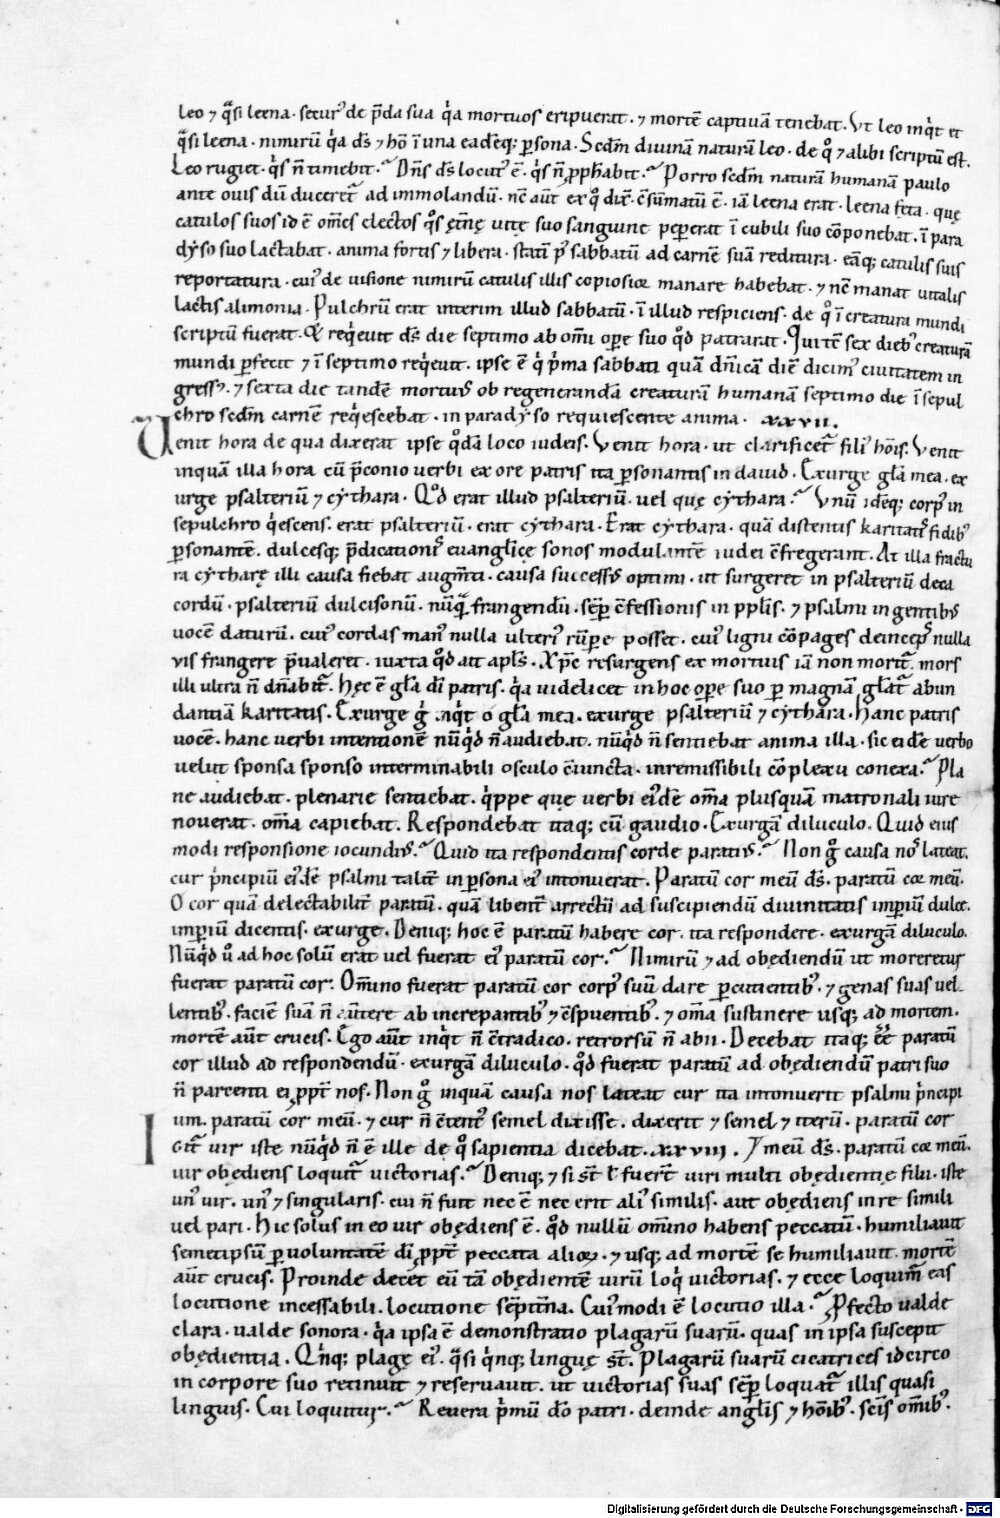 leo ⁊ q̃si leena · secur᷒ de p̃da sua q̇a mortuos eripuerat · ⁊ mortē captiuā tenebat. Ut leo inq̇t et
q̃si leena · nimirū q̇a ds̄ ⁊ hō ī una eadēq; p̱sona · Scd̄m diuinā naturā leo · de qͦ ⁊ alibi scriptū est.
Leo rugiet · q̇s n̄ timebit · Dn̄s ds̄ locut᷒ ē · q̇s n̄ ꝓph̄abit · Porro scd̄m naturā humanā paulo
ante ouis dū duceret᷑ ad immolandū · nc̄ aūt ex qͦ dix̄ · c̄sum̄atū ē · iā leena erat · leena fęta · quę
catulos suos id ē om̄es electos qͦs ęt̄nę uitę suo sanguine pep̱erat ī cubili suo cōponebat · ī para
dyso suo lactabat · anima fortis ⁊ libera · statī p᷒ sabbatū ad carnē suā reditura · eāq; catulis suis
reportatura · cui᷒ de uisione nimirū catulis illis copiosiꝰ manare habebat · ⁊ nc̄ manat uitalis
lactis alimonia · Pulchrū erat interim illud sabbatū · ī illud respiciens · de qͦ ī creatura mundi
scriptū fuerat · Et req̇euit ds̄ die septimo ab om̄i op̱e suo qͦd patrarat · Qui tē sex dieb᷒ creaturā
mundi p̱fecit ⁊ ī septimo req̇euit · ipse ē q̇ ṗma sabbati quā dn̄icā diē dicim᷒ ciuitatem in
gress᷒ · ⁊ sexta die tandē mortuus ob regenerandā creaturā humanā septimo die ī sepul
chro scd̄m carnē req̇escebat · in paradyso requiescente anima · xxvii.
Uenit hora de qua dixerat ipse qͦdā loco iudeis · Venit hora · ut clarificet᷑ fili᷒ hōis · Venit
inquā illa hora cū p̄conio uerbi ex ore patris ita p̱sonantis in dauid · Exurge gl̄a mea · ex
urge psalteriū ⁊ cythara · Qͦd erat illud psalteriū · uel quę cythara · Unū idēq; corp᷒ in
sepulchro q̇escens · erat psalteriū · erat cythara · Erat cythara · quā distentis karitatis fidib᷒
p̱sonantē · dulcesq; p̄dicationis euanglicę sonos modulantē iudei c̄fregerant · At illa fractu
ra cytharę illi causa fiebat augm̄ti · causa success᷒ optimi · ut surgeret in psalteriū deca
cordū · psalteriū dulcisonū · nūq̃ frangendū · sēp̱ c̄fessionis in ppl̄is · ⁊ psalmi in gentib᷒
uocē daturū · cui᷒ cordas man᷒ nulla ulteri᷒ rūp̱e posset · cui᷒ ligni cōpages deincep᷒ nulla
vis frangere p̄ualeret · iuxta qͦd ait apl̄s · Xp̄c resurgens ex mortuis iā non morit᷑ · mors
illi ultra n̄ dn̄abit᷑ · Hęc ē gl̄a dī patris · q̇a uidelicet in hoc op̱e suo p̱ magnā gl̄at᷑ abun
dantiā karitatis · Exurge g̊ inq̇t o gl̄a mea · exurge psalteriū ⁊ cythara · Hanc patris
uocē · hanc uerbi intentionē nūq̇d n̄ audiebat · nūq̇d n̄ sentiebat anima illa · sic eidē uerbo
velut sponsa sponso interminabili osculo c̄iuncta · inremissibili cōplexu conexa · Pla
ne audiebat · plenarie sentiebat · q̇ppe que uerbi ei᷒dē om̄a plusquā matronali iure
nouerat · om̄a capiebat · Respondebat itaq; cū gaudio · Exurgā diluculo · Quid eius
modi responsione iocundi᷒ · Quid ita respondentis corde parati᷒ · Non gͦ causa nos lateat.
cur ṗncipiū ei᷒dē psalmi talit̄ in p̱sona ei᷒ intonuerat · Paratū cor meū ds̄ · paratū cor meū ·
O cor quā delectabilit̄ paratū · quā libent̄ arrectū ad suscipiendū diuinitatis imp̱iū dulce.
imp̱iū dicentis · exurge · Deniq; hoc ē paratū habere cor · ita respondere · exurgā diluculo.
Nūq̇d uͦ ad hoc solū erat uel fuerat ei᷒ paratū cor · Nimirū ⁊ ad obędiendū ut moreretur
fuerat paratū cor · Om̄ino fuerat paratū cor corp᷒ suū dare p̱cutientib᷒ · ⁊ genas suas uel
lentib᷒ · faciē suā n̄ au̇tere ab increpantib᷒ ⁊ c̄spuentib᷒ · ⁊ om̄a sustinere usq; ad mortem.
mortē aūt crucis · Ego aūt inq̇t n̄ c̄tradico · retrorsū n̄ abii · Decebat itaq; ēē paratū
cor illud ad respondendū · exurgā diluculo · qͦd fuerat paratū ad obędiendū patri suo
n̄ parcenti ei ꝓpt̄ nos · Non gͦ inquā causa nos lateat cur ita intonuerit psalmi ṗncipi
um · paratū cor meū · ⁊ cur n̄ c̄tent᷒ semel dixisse · dixerit ⁊ semel ⁊ iterū · paratū cor
Igit̄ uir iste nūq̇d n̄ ē ille de qͦ sapientia dicebat · xxviii · meū ds̄ · paratū cor meū ·
uir obędiens loquit᷑ uictorias · Deniq; ⁊ si st̄ l̄ fuer̄t uiri multi obędientię filii · iste
un᷒ uir · un᷒ ⁊ singularis · cui n̄ fuit nec ē nec erit ali᷒ similis · aut obędiens in re simili
uel pari · Hic solus in eo uir obędiens ē · qͦd nullū om̄ino habens peccatū · humiliauit
semetipsū p̱ uoluntatē dī ꝓpt̄ peccata alioꝝ · ⁊ usq; ad mortē se humiliauit · mortē
aūt crucis · Proinde decet eū tā obędientē uirū loq̇ uictorias · ⁊ ecce loquit᷑ eas
locutione incessabili · locutione sēpit̄na · Cui᷒modi ē locutio illa · Ꝓfecto ualde
clara · ualde sonora · q̇a ipsa ē demonstratio plagarū suarū · quas in ipsa suscepit
obędientia · Qīnq; plagę ei᷒ · q̃si q̇nq; linguę st̄ · Plagarū suarū cicatrices idcirco
in corpore suo retinuit ⁊ reseruauit · ut uictorias suas sēp̱ loquat᷑ illis quasi
linguis · Cui loquitur · Reuera ṗmū dō patri · deinde angl̄is ⁊ hōib᷒ · scīs om̄ib᷒.
Digitalisierung gefördert durch die Deutsche Forschungsgemeinschaft - DFG